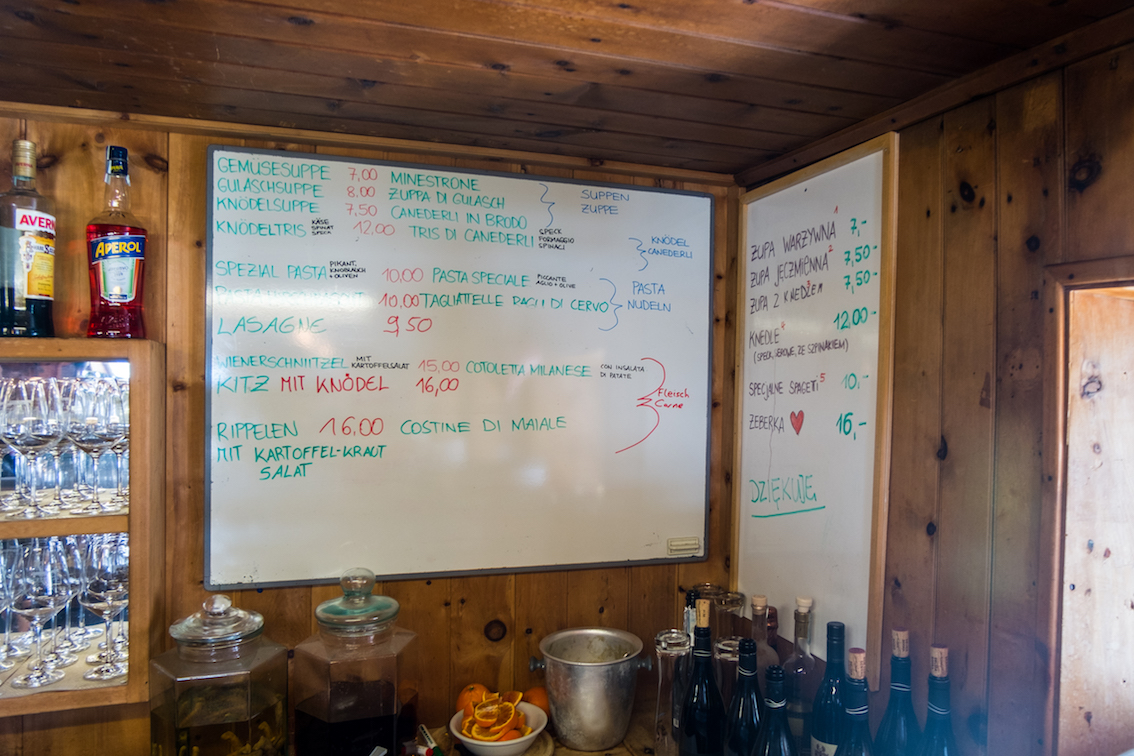 GEMÜSESUPPE 7,00 MINESTRONE
GULASCHSUPPE 8.00 ZUPPA DI GULASCH
KNÖDELSUPPE 7,50 CANEDERLI IN BRODO
SUPPEN
ZUPPE
KNÖDELTRIS KÄSE SPINAT SPECK 12.00 TRIS DI CANEDERLI SPECK FORMAGGIO SPINACI
KNÖDEL
CANEDERLI
SPEZIAL PASTA PIKANT, KNOBLAUCH + OLIVEN 10,00 PASTA SPECIALE PICCANTE AGLIO + OLIVE
PASTA 10,00 TAGLIATELLE RAGU DI CERVO
PASTA
NUDELN
LASAGNE 9,50
WIENERSCHNIITZEL MIT KARTOFFELSALAT 15,00 COTOLETTA MILANESE CON INSALATA DI PATATE
KITZ MIT KNÖDEL 16,00
Fleisch
Carne
RIPPELEN 16,00 COSTINE DI MAIALE
MIT KARTOFFEL-KRAUT
SALAT
ZUPA WARZYWNA 1 7,-
ZUPA JĘCZMIENNA 2 7,50-
ZUPA Z KNEDLEM 3 7,50-
KNEDLE 4 12.00-
(SPECK, SEROWE, ZE SZPINAKIEM)
SPECJALNE SPAGETI 5 10,-
ŻEBERKA ❤ 16,-
DZIĘKUJĘ
AVERNA
APEROL